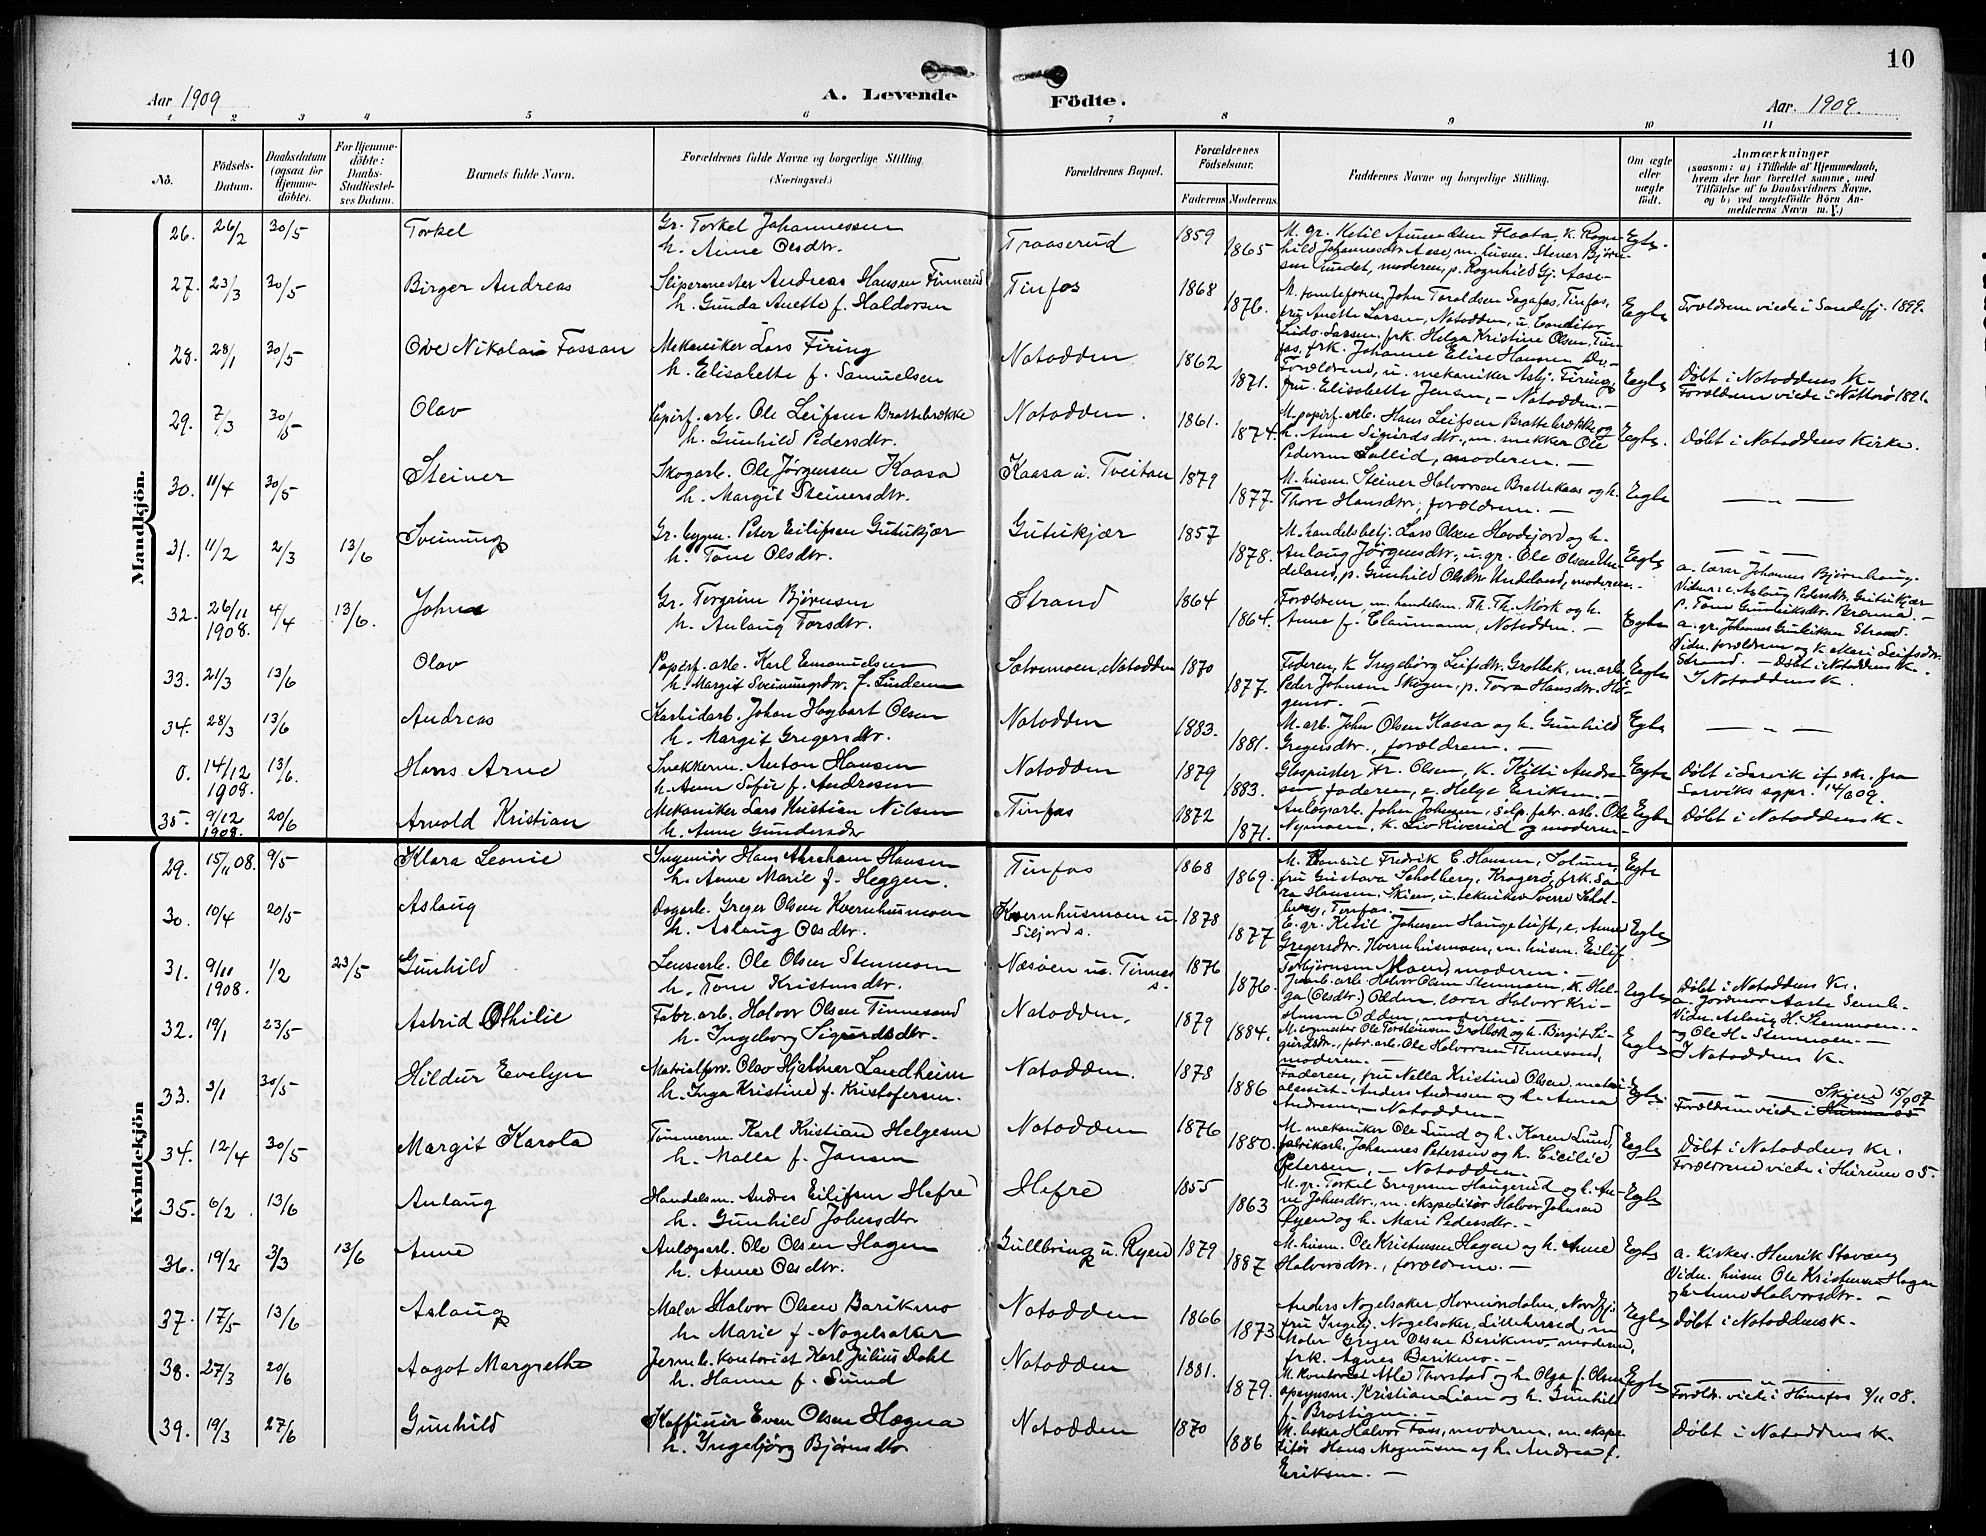 10
Aar 1909
A. Levende
Födte.
Aar. 1909.
1 2 3 4 5 6 7 8 9 10 11
No.
Födsels-
Datum.
Daabsdatum
(ogsaa for
Hjemme-
döbte).
For Hjemme-
döbte:
Daabs-
Stadfæstel-
ses Datum.
Barnets fulde Navn.
Forældrenes fulde Navne og borgerlige Stilling.
(Næringsvei.)
Forældrenes Bopæl.
Forældrenes
Födselsaar.
Faderens. Moderens.
Faddernes Navne og borgerlige Stilling.
Om ægte
eller
uægte
födt.
Anmærkninger
(saasom: a) i Tilfælde af Hjemmedaab,
hvem der har forrettet samme, med
Tilföielse af to Daabsvidners Navne,
og b) ved uægtefödte Börn An-
melderens Navn m. V.)
Mandkjön.
26. 26/2 30/5 Torkel Gr. Torkel Johannessen Traaserud 1859
h. Anne Olsdtr. 1865 Egte.
27. 23/3 30/5 Birger Andreas Slipermester Andreas Hansen Finnerud Tinfos 1868
h. Gunda Anette f. Haldorsen 1876. Egte Forældrene viede i Sandefj. 1899.
28. 28/1 30/5 Ove Nikolai Fossan Mekaniker Lars Firing Notodden 1862
h. Elisabette f. Samuelsen 1871. fru Elisabette Jensen, – Notodden. – Egte Döbt i Notoddens K.
Forældrene viede i Nötterö 1891.
29. 7/3 30/5 Olav Papirf. arb. Ole Leifsen Brattebrække Notodden. 1861. M. papirf. arb. Hans Leifsen Brattebrække og
h. Gunhild Pedersdtr. 1874. h. Anne Sigurdsdtr., m. mekker Ole Egte. Döbt i Notoddens Kirke.
Pedersen Lullid, moderen. –
30. 11/4 30/5 Steiner Skogarb. Ole Jørgensen Kaasa Kaasa u. Tveitan 1879 M. husm. Steiner Halvorsen Brattekaas og h.
h. Margit Steinersdtr. 1877. Thore Hansdtr, forældrene. – Egte – " –
31. 11/2 2/3 13/6 Sveinung Gr. bygm. Peter Eilifsen Gutukjær Gutukjær 1857 M. handelsbetj. Lars Olsen Hovdejord og h.
h. Tone Olsdtr. 1878. Aslaug Jørgensdtr., u. gr. Ole Olsen Un- Egte – " –
deland, p. Gunhild Olsdtr Undeland, moderen. a. lærer Johannes Bjørnhaug.
32. 26/11 1908. 4/4 13/6. John Gr. Torgrim Bjørnsen Strand 1864 Forældrene, m. handelsm. Th. Th. Mörk og h.
h. Aslaug Torsdtr. 1864. Anne f. Claumann, Notodden. – Egte a. gr. Johannes Gunleiksen Strand.
Vidn. forældrene og k. Mari Leifsdtr.
33. 21/3 13/6 Olav Papirf. arb. Karl Emanuelsen Sætremoen, Notodden 1870 Faderen, k Ingebörg Leifsdtr. Grotbek, m. arb. Egte Strand. – Döbt i Notoddens K.
h. Margit Sveinungsdtr. f. Lindem 1877. Peder Johnsen Skogen, p. Tora Hansdtr. Hö- I Notoddens K.
34. 28/3 13/6 Andreas Karbidarb. Johan Hagbart Olsen Notodden 1883. M. arb. John Olsen Kaasa og h. Gunhild Egte
h. Margit Gregersdtr. 1881. Gregersdtr., forældrene. – – " –
0. 14/12 1908. 13/6. Hans Arne Snekkerm. Anton Hansen Notodden 1879 Glaspuster Fr. Olsen, k. Kitti Andre- Egte Döbt i Larvik if. skr. fra
h. Anne Sofie f. Andresen 1883. sen faderen, e. Helge Eriksen. – Larviks sgpr. 14/6 09.
35. 9/12 1908. 20/6 Arnold Kristian Mekaniker Lars Kristian Nilsen Tinfos 1872 Anlægsarb. John Johnsen, selp. fabr. arb. Ole Egte Döbt i Notoddens K.
h. Anne Gundersdtr 1871. Nymoen, k. Liv Riverud og moderen
Kvindekjön
29. 15/11 08. 9/5 Klara Leonie Ingeniör Hans Abraham Hansen Tinfos 1868 M. Konsul Fredrik C. Hansen, Solum, Egte
h. Anne Marie f. Heggen. 1869. fru Gustava Scholberg, Kragerö, frk. Sa-
ra Hansen, Skien, u. tekniker Sverre Schol-
berg, Tinfos. –
30. 10/4 20/5 Aslaug Dagarb. Greger Olsen Kvernhusmoen Kvernhusmoen u. 1878 E. gr. Ketil Johnsen Haugetuft, e. Anne Egte
h. Aslaug Olsdtr. Siljord s. 1877 Gregersdtr. Kvernhusmoen, m. husm. Eilif
Torbjörnsen Moen, moderen. –
31. 9/11 1908. 1/2 23/5 Gunhild Lensearb. Ole Olsen Stenmoen Næsöen u. Tinnes 1876
h. Tone Kristensdtr. 1876. ga (Olsdtr.) Odden, lærer Halvor Kri- Egte Döbt i Notoddens Kr.
stensen Odden, moderen. – Vidn. Aslaug H. Stenmoen. –
og Ole H. Stenmoen. –
32. 19/1 23/5 Astrid Othilie Fabr. arb. Halvor Olsen Tinnesand Notodden. 1879
h. Ingeborg Sigurdsdtr. 1884. gurdsdtr., fabr. arb. Ole Halvorsen Tinnesand, Egte I Notoddens K.
moderen. –
33. 3/1 30/5 Hildur Evelyn Matrialforv. Olav Hjalmar Landheim Notodden. 1878 Faderen, fru Nella Kristine Olsen,
h. Inga Kristine f. Kristofersen. 1886 Anders Andresen og h. Anna Egte. – " – Skien 15/9 07
Andresen – Notodden – Forældrene viede i
34. 12/4 30/5 Margit Karola Tömmerm. Karl Kristian Helgesen Notodden 1876 M. mekaniker Ole Lund og h. Karen Lund,
h. Malla f. Jansen 1880. fabrikarb. Johannes Petersen og h. Cicilie Egte Döbt i Notoddens Kr.
Petersen, – Notodden. Forældrene viede i Hurum 05.
35. 6/2 13/6 Aslaug Handelsm. Andres Eilifsen Hefre Hefre 1855 M. gr. Torkel Gregersen Haugerud og h. An-
h. Gunhild Johnsdtr. 1863 ne Johnsdtr., m. ekspeditör Halvor Johnsen Egte
Öyen og h. Mari Pedersdtr. –
36. 19/2 3/3 13/6 Anne Anlægsarb. Ole Olsen Hagen Gullbring u. Ryen 1879 M. husm. Ole Kristensen Hagen og h. Anne Egte a. kirkes. Henrik Stavang
h. Anne Olsdtr. 1887 Halvorsdtr., forældrene. – Vidn. husm Ole Kristensen Hagen
og h. Anne Halvorsdtr. –
37. 17/5 13/6 Aslaug Maler Halvor Olsen Barikmo Notodden 1866 Anders Nogelsaker, Hornindalen, Nordfj. Egte Döbt i Notoddens K.
h. Marie f. Nogelsaker 1873 fru Ingebj. Nogelsaker, Lillehered, m
Maler Greger Olsen Barikmo, moderen,
frk. Agnes Barikmo. –
38. 27/3 20/6 Aagot Margrethe Jernb. kontorist Karl Julius Dahl Notodden 1881. M. Kontorist Atle Thorstad og h. Olga f. Olsen Egte – " –
h. Hanna f. Lund 1879. opsynsm. Kristian Lian og h. Gunhild Foreldr. viede i Hönefos 8/11 08.
f. Brostigen. –
39. 19/3 27/6 Gunhild Kaffivær Even Olsen Hægna Notodden 1870 M. baker Halvor Foss, moderen, m. ekspe- Döbt i Notoddens K.
h. Ingebjörg Björnsdtr 1886 ditör Hans Magnussen og h. Andrea f.
Eriksen. –